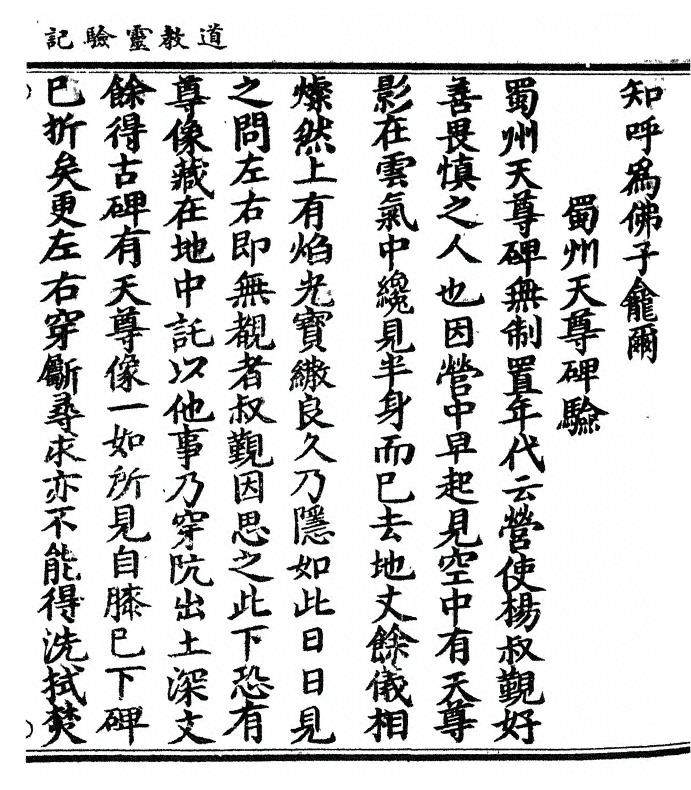 道教靈驗記
知呼為佛子龕爾
蜀州天尊碑驗
蜀州天尊碑無制置年代云營使楊叔覲好
善畏慎之人也因營中早起見空中有天尊
影在雲氣中纔見半身而已去地丈餘儀相
燦然上有焰光寶繖良久乃隱如此日日見
之問左右即無覩者叔覲因思之此下恐有
尊像藏在地中託以他事乃穿阬出土深丈
餘得古碑有天尊像一如所見自膝已下碑
已折矣更左右穿斸尋求亦不能得洗拭焚